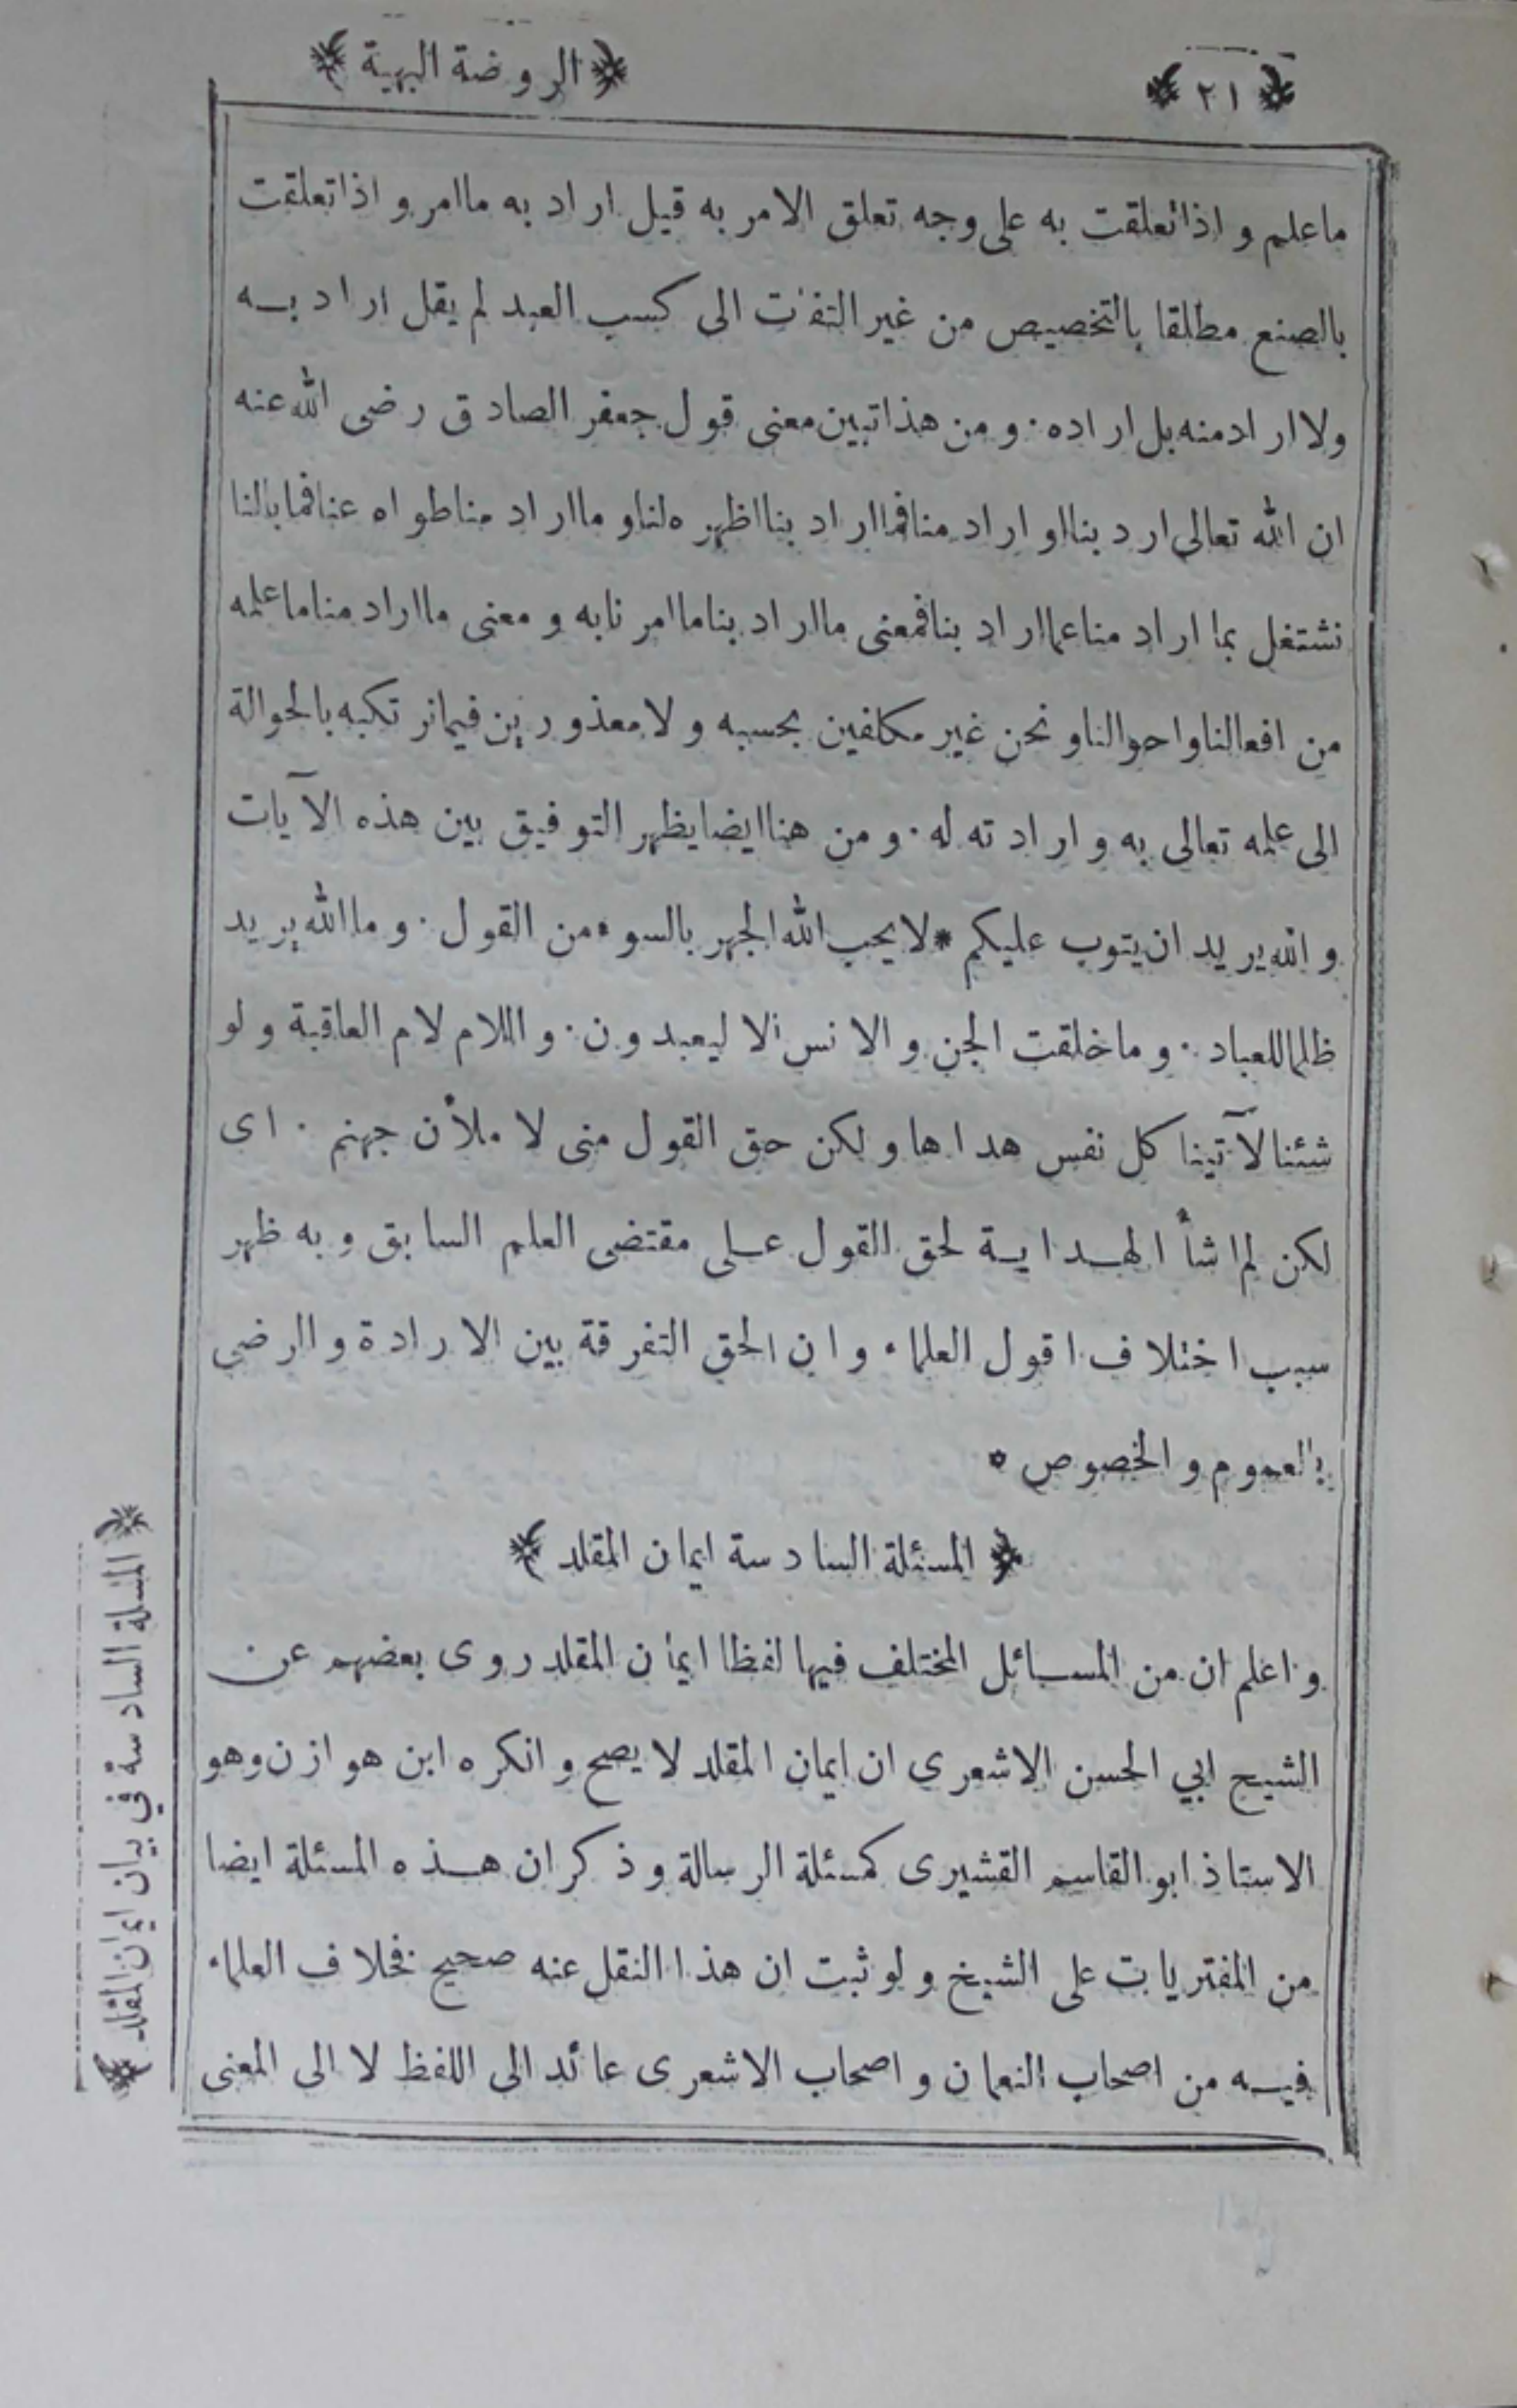 ﴿ ٢١ ﴾
﴿ الروضة البهية ﴾
ما علم و اذا تعلقت به على وجه تعلق الامر به قيل اراد به ما امر و اذا تعلقت
بالصنع مطلقا بالتخصيص من غير التفات الى كسب العبد لم يقل اراد به
ولا اراد منه بل اراده ٠ و من هذا تبين معنى قول جعفر الصادق رضى الله عنه
ان الله تعالى ارد بنا او اراد منا فما اراد بنا اظهره لنا و ما اراد منا طواه عنا فما بالنا
نشتغل بما اراد منا عما اراد بنا فمعنى ما اراد بنا ما امرنا به و معنى ما اراد منا ما علمه
من افعالنا و احوالنا و نحن غير مكلفين بحسبه و لا معذورين فيما نرتكبه بالحوالة
الى علمه تعالى به و ارادته له ٠ و من هنا ايضا يظهر التوفيق بين هذه الآيات
و الله يريد ان يتوب عليكم * لا يحب الله الجهر بالسوء من القول ٠ و ما الله يريد
ظلما للعباد ٠ و ما خلقت الجن و الانس الا ليعبدون ٠ و اللام لام العاقبة و لو
شئنا لآتينا كل نفس هداها و لكن حق القول منى لاملأن جهنم ٠ اى
لكن لم اشأ الهداية لحق القول على مقتضى العلم السابق و به ظهر
سبب اختلاف اقول العلماء و ان الحق التفرقة بين الارادة و الرضى
بالعموم و الخصوص *
﴿ المسئلة السادسة ايمان المقلد ﴾
و اعلم ان من المسائل المختلف فيها لفظا ايمان المقلد روى بعضهم عن
الشيخ ابي الحسن الاشعرى ان ايمان المقلد لا يصح و انكره ابن هوازن وهو
الاستاذ ابو القاسم القشيرى كمسئلة الرسالة و ذكر ان هذه المسئلة ايضا
من المفتريات على الشيخ و لو ثبت ان هذا النقل عنه صحيح فخلاف العلماء
فيه من اصحاب النعمان و اصحاب الاشعرى عائد الى اللفظ لا الى المعنى
﴿ المسئلة السادسة في بيان ايمان المقلد ﴾